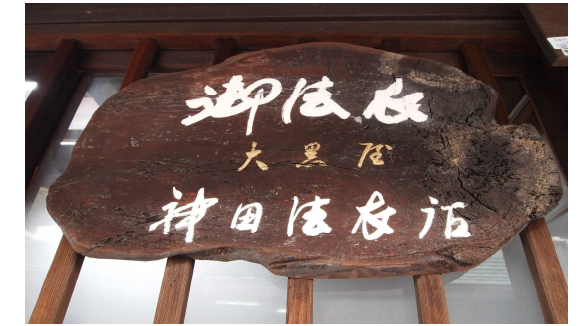 御法衣
大黒屋
神田法衣店